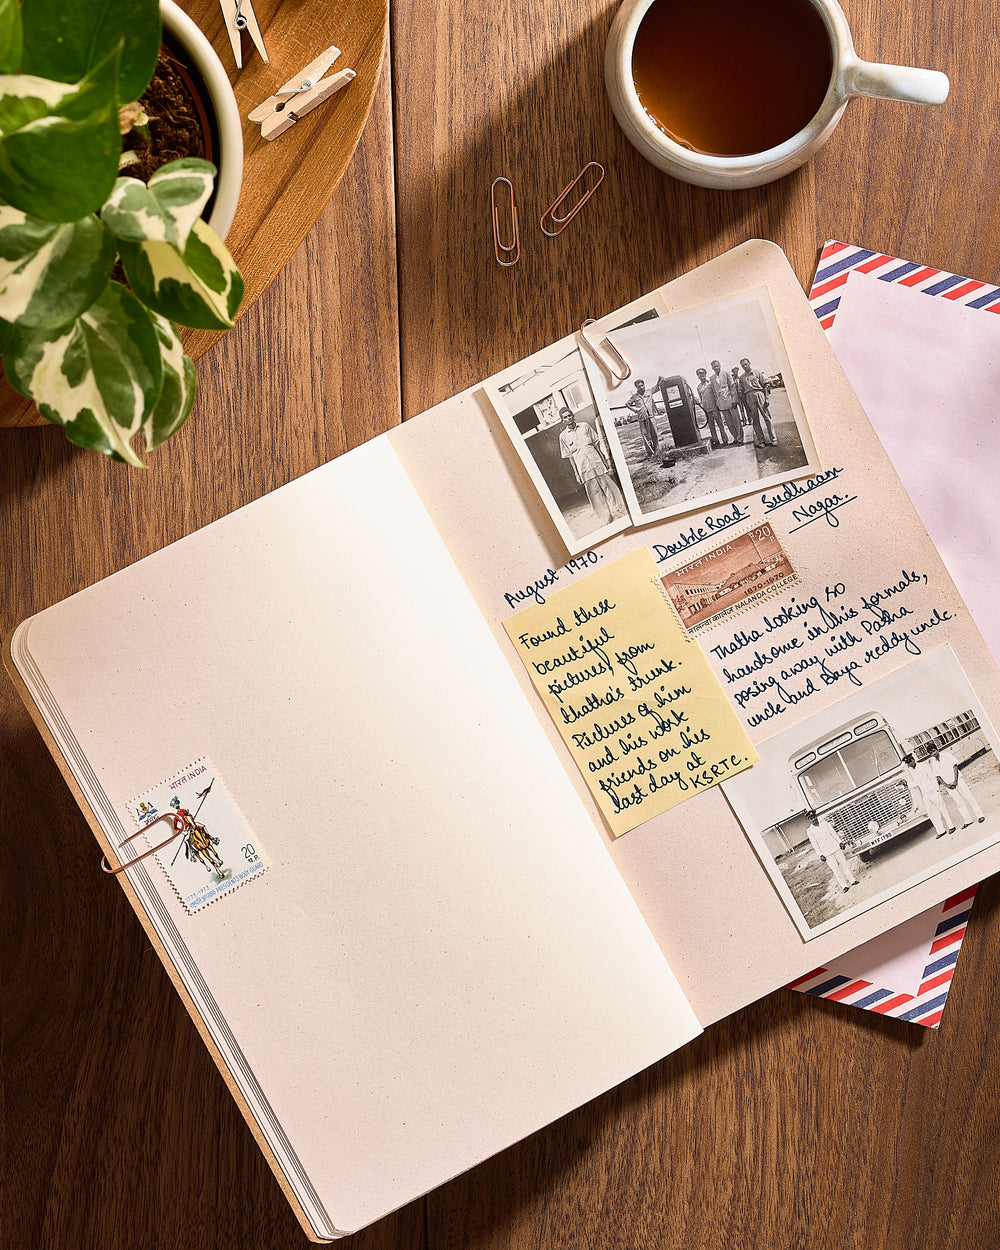 August 1970.
Double Road- Sudhaam
Nagar.
भारत INDIA
20
1870-1970
नालन्दा कालेज NALANDA COLLEGE
Found these
beautiful
pictures, from
thatha's trunk.
Pictures of him
and his work
friends on his
last day at
KSRTC.
Thatha looking so
handsome in his formals,
posing away with Patha
uncle and Daya reddy uncle
भारत INDIA
20
1773-1973
PRESIDENT'S BODY GUARD